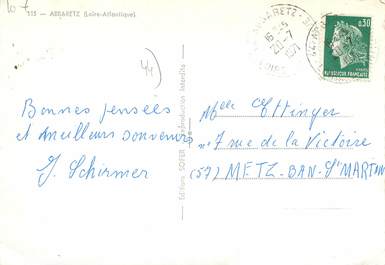 10 f
115 - ABBARETZ (Loire-Atlantique)
44
16-5
20-7
1971
0,30
RÉPUBLIQUE FRANÇAISE
Bonnes pensées
et meilleurs souvenirs
J. Schirmer
Editions SOFER
Reproduction Interdite
Melle Ettinger
7 rue de la Victoire
(57) METZ-BAN-St MARTIN